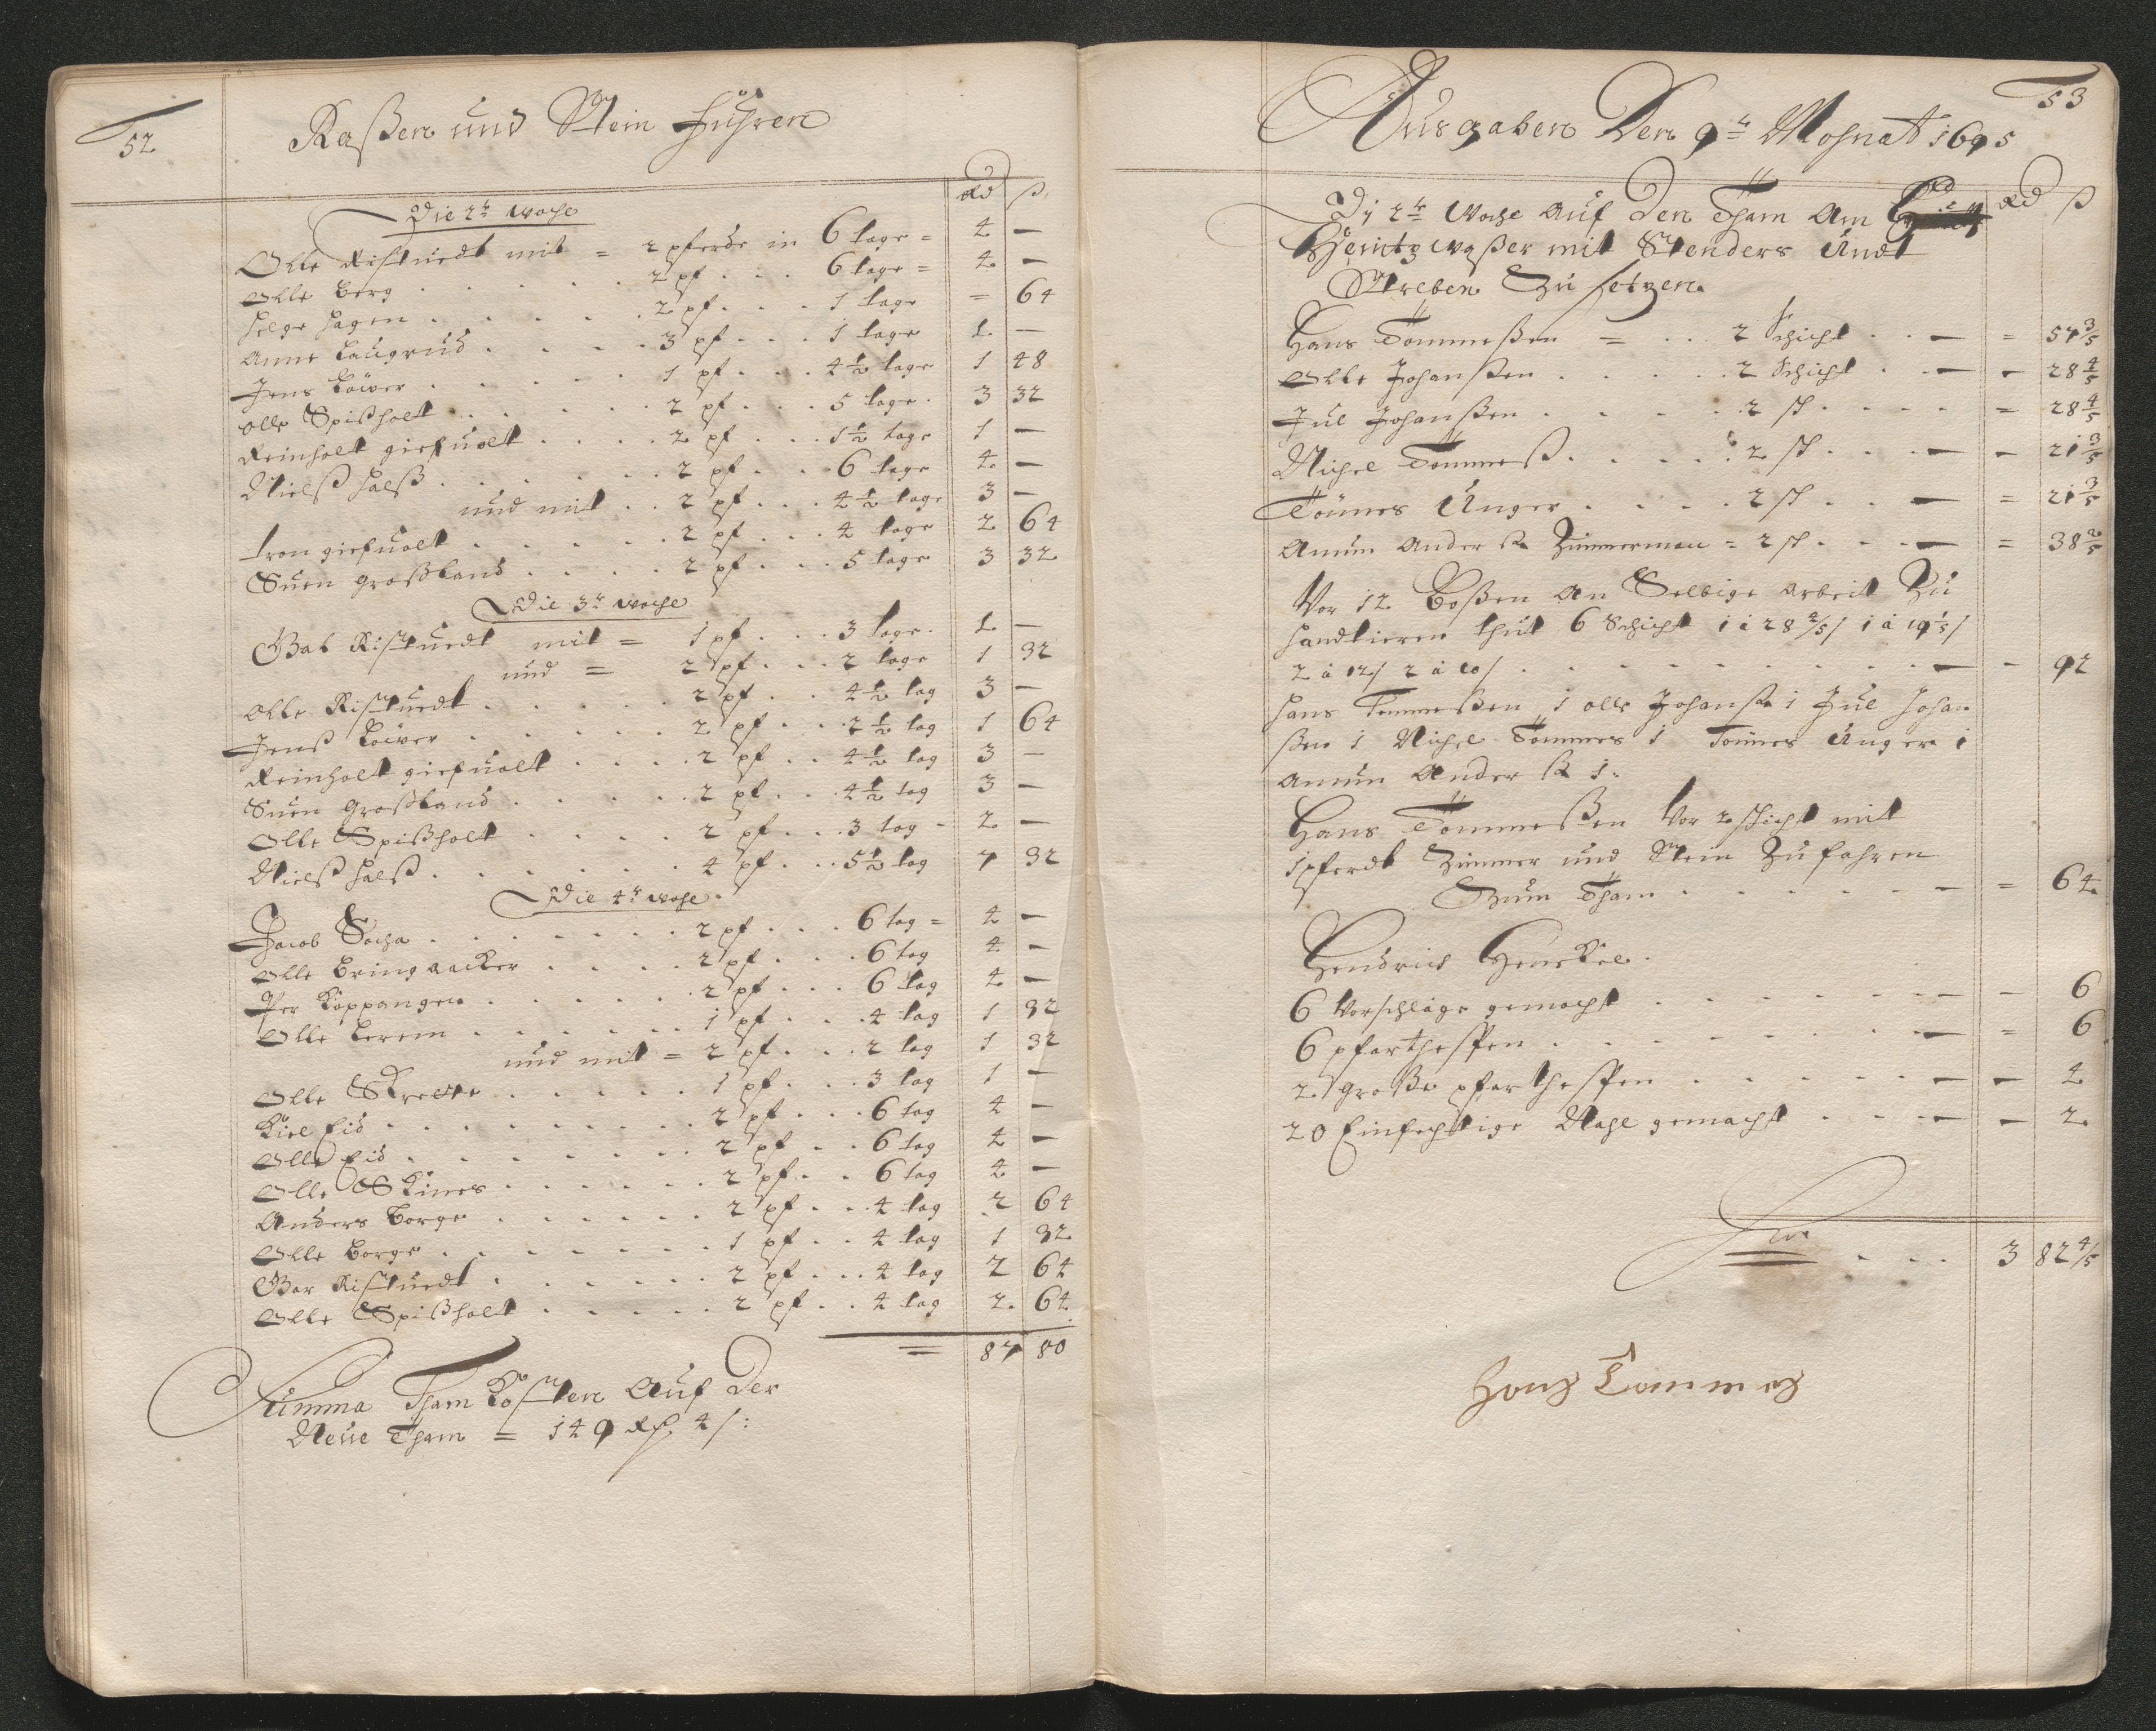 52
Raßen und Stein Führen
Rd ß
Die 2te woche
Olle Ristuedt mit = 2 pferde in 6 tage = 4 —
Olle Berg . . . . . 2 pf . . . 6 tage = 4 —
Helge Hagen . . . . . 2 pf . . . 1 tage = 64
Anne Laugrud . . . . 3 pf . . . 1 tage 1 —
Jens Löwer . . . . . 1 pf . . . 4½ tage 1 48
Olle Spißholt . . . . . 2 pf . . . 5 tage 3 32
Reinholt giefuelt . . . . 2 pf . . . 1½ tage 1 —
Nielß Halß . . . . . 2 pf . . . 6 tage 4 —
und mit . . 2 pf . . . 4½ tage 3 —
tron giefuolt . . . . . 2 pf . . . 4 tage 2 64
Suen Großband . . . . 2 pf . . . 5 tage 3 32
Die 3te woche
Ristuedt mit = 1 pf . . . 3 tage 1 —
und = 2 pf . . . 2 tage 1 32
Olle Ristuedt . . . . . 2 pf . . 4½ tag 3 —
Jenß Löwer . . . . . 2 pf . . . 2½ tag 1 64
Reinholt giefuolt . . . . 2 pf . . 4½ tag 3 —
Suen Großband . . . . . 2 pf . . . 4½ tag 3 —
Olle Spißholt . . . . 2 pf . . . 3 tag 2 —
Nielß Halß . . . . . . 4 pf . . . 5½ tag 7 32
Die 4te woche
Jacob Socha . . . . . . 2 pf . . . 6 tag = 4 —
Olle Bringaacker . . . . 2 pf . . . 6 tag 4 —
Per Koppangen . . . . . 2 pf . . . 6 tag 4 —
Olle Berem . . . . . . 1 pf . . . 4 tag 1 32
und mit = 2 pf . . . 2 tag 1 32
Olle . . . . . 1 pf . . . 3 tag 1 —
Kiel Eid . . . . . . . 2 pf . . . 6 tag 4 —
Olle Eid . . . . . . . 2 pf . . 6 tag 4 —
Olle Skines . . . . . . 2 pf . . 6 tag 4 —
Anders Borge . . . . . . 2 pf . . . 4 tag 2 64
Olle Borge . . . . . . . 1 pf . . 4 tag 1 32
Ristuedt . . . . . . 2 pf . . . 4 tag 2 64
Olle Spißholt . . . . . 2 pf . . 4 tag 2 64
= 87 80
Summa Tham Kosten Auf der
Neue Tham = 149 Rth. 4 ß:
53
Ausgaben Den 9te Mohnat 1695
Rd ß
Di 2te Woche auf Den Tham Am
waßer mit Stenders Undt
Streben Zu setzen
Hans Tommeßen = . . 2 Schicht . . — = 57 3/5
Olle Johanßen . . . . . 2 Schicht . . — — 28 4/5
Jul Johanßen . . . . . 2 sch . . . . = 28 4/5
Michel Tommeß . . . . . 2 sch . . . — — 21 3/5
Tönnes Unger . . . . 2 sch . . — = 21 3/5
Amun Anderß Zimmerman = 2 sch . . . — = 38 2/5
Vor 12 Boßen An Selbige Arbeit Zu
handtieren thut 6 Schicht 1 à 28 4/5 / 1 à 19 1/5 /
2 à 12 / 2 à 10 / . . . . . . . — — 92
Hans Tommeßen 1 Olle Johanß 1 Jul Johan
ßen 1 Michel Tommes 1 Tönnes Unger 1
Amun Anderß 1.
Hans Tommeßen Vor 2 schicht mit
1 pferdt Zimmer und Stein Zu fahren
Zum Tham . . . . . . — = 64
Hendrich Henckel.
6 Vorschläge gemacht . . . . . — — 6
6 . . . . . . — = 6
2 große . . . . . — — 4
20 Einfechtige Nagel gemacht . . . — — 2
. . . 3 82 4/5
Hans Tommes